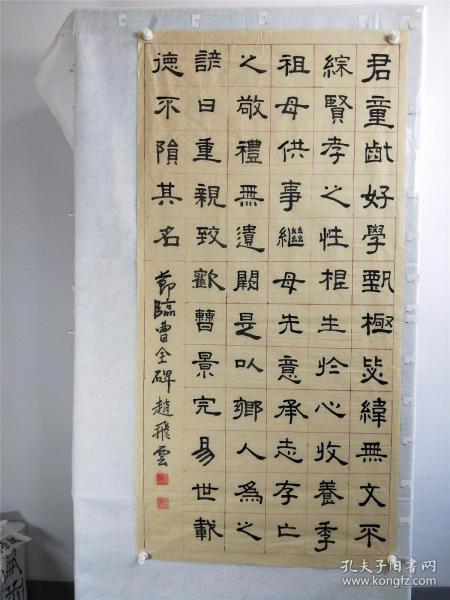 君童齔好學甄極毖緯無文不
綜賢孝之性根生於心收養季
祖母供事繼母先意承志存亡
之敬禮無遺闕是以鄉人為之
諺曰重親致歡曹景完易世載
德不隕其名
節臨曹全碑趙飛雲
孔夫子旧书网
www.kongfz.com